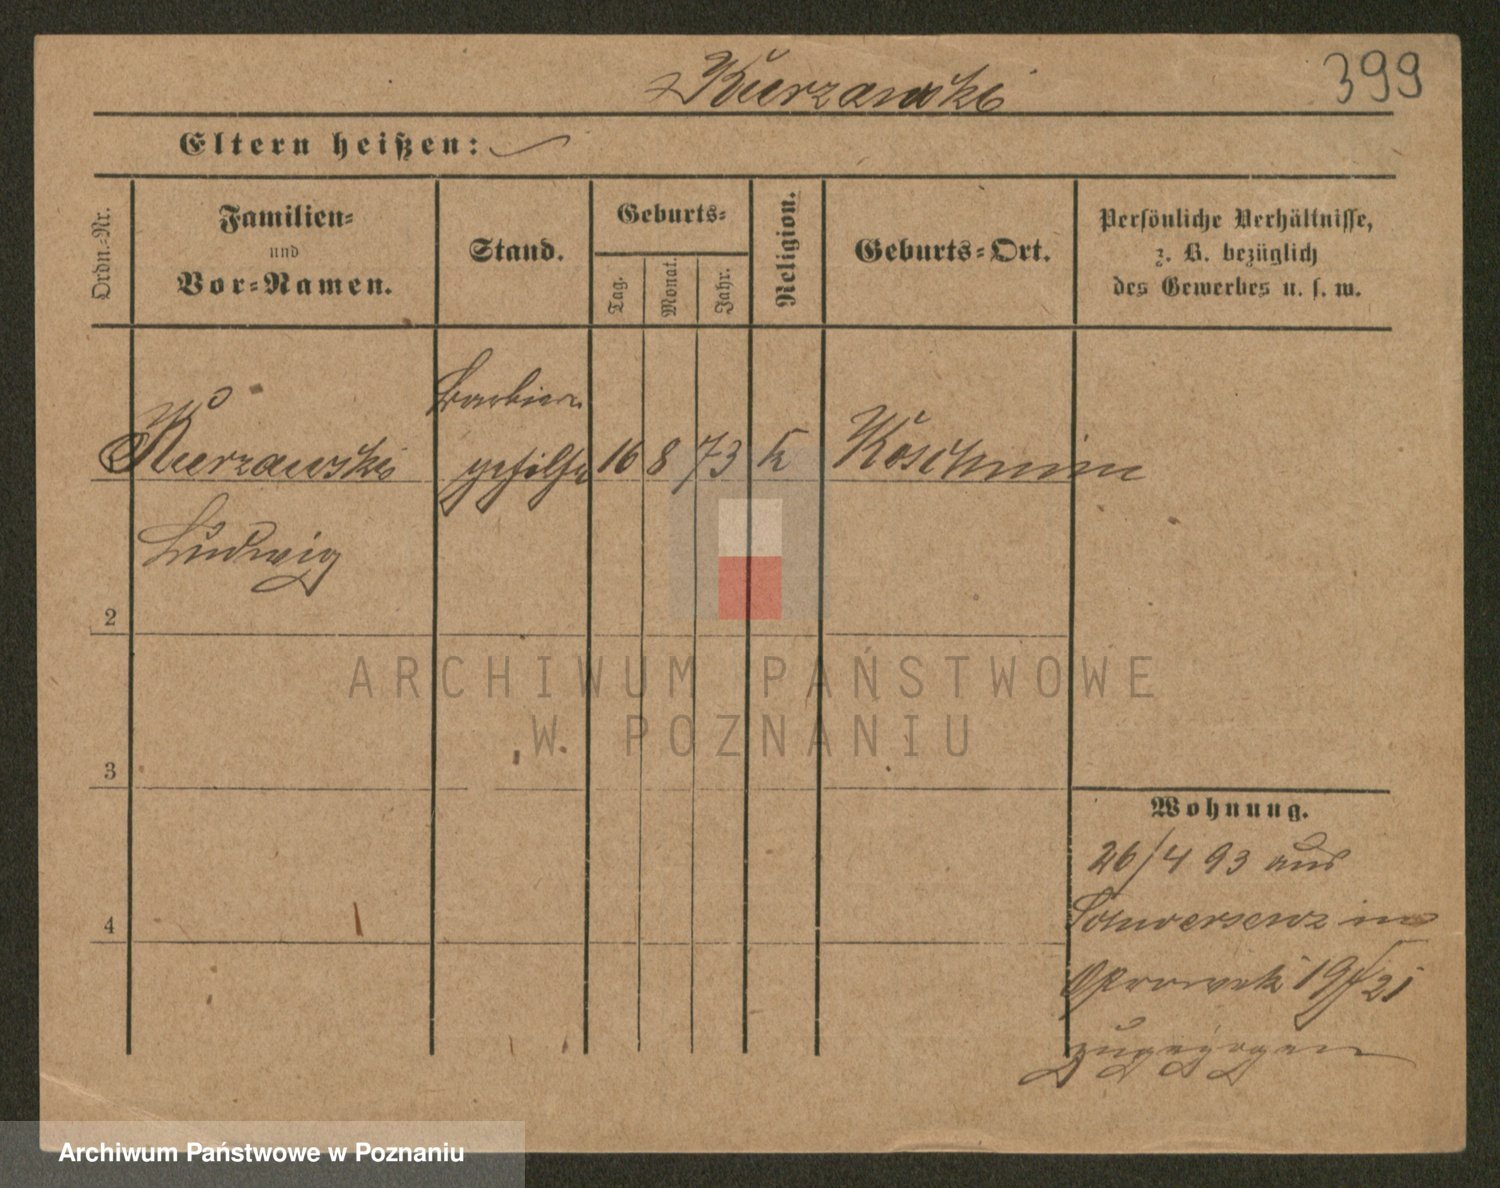 Kurzawski
399
Eltern heißen:
Ordn.-Nr.
Familien-
und
Vor-Namen.
Stand.
Geburts-
Tag.
Monat.
Jahr.
Religion.
Geburts-Ort.
Persönliche Verhältnisse,
z. B. bezüglich
des Gewerbes u. s. w.
Barbier
Kurzawski
gehilfe
16
8
73
k
Koschmin
Ludwig
2
3
4
ARCHIWUM PAŃSTWOWE
W POZNANIU
Wohnung.
26/4 93 aus
Schwersenz in
19/21
zugezogen
Archiwum Państwowe w Poznaniu